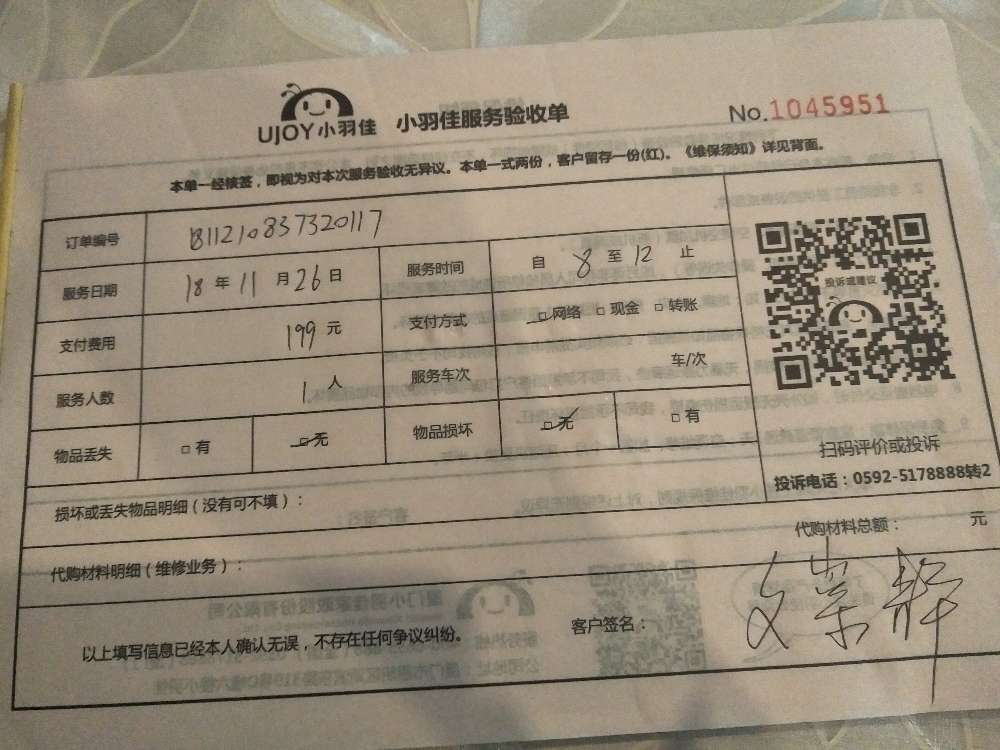 UJOY小羽佳 小羽佳服务验收单 No.1045951
本单一经核签，即视为对本次服务验收无异议。本单一式两份，客户留存一份(红)。《维保须知》详见背面。
订单编号 1811210837320117
服务日期 18年11月26日 服务时间 自8至12止
支付费用 199元 支付方式 □网络 □现金 □转账
服务人数 1人 服务车次 车/次
物品丢失 □有 □无 物品损坏 □无 □有
投诉或建议
扫码评价或投诉
投诉电话：0592-5178888转2
损坏或丢失物品明细（没有可不填）：
代购材料明细（维修业务）： 代购材料总额： 元
以上填写信息已经本人确认无误，不存在任何争议纠纷。 客户签名：